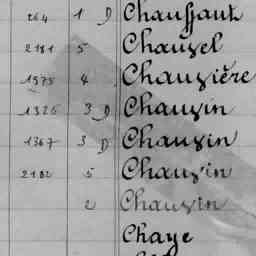 264 1 D Chaussant
2181 5 Chauvel
1975 4 Chauvière
1326 3 D Chauvin
1367 3 D Chauvin
2182 5 Chauvin
2 Chauvin
Chaye